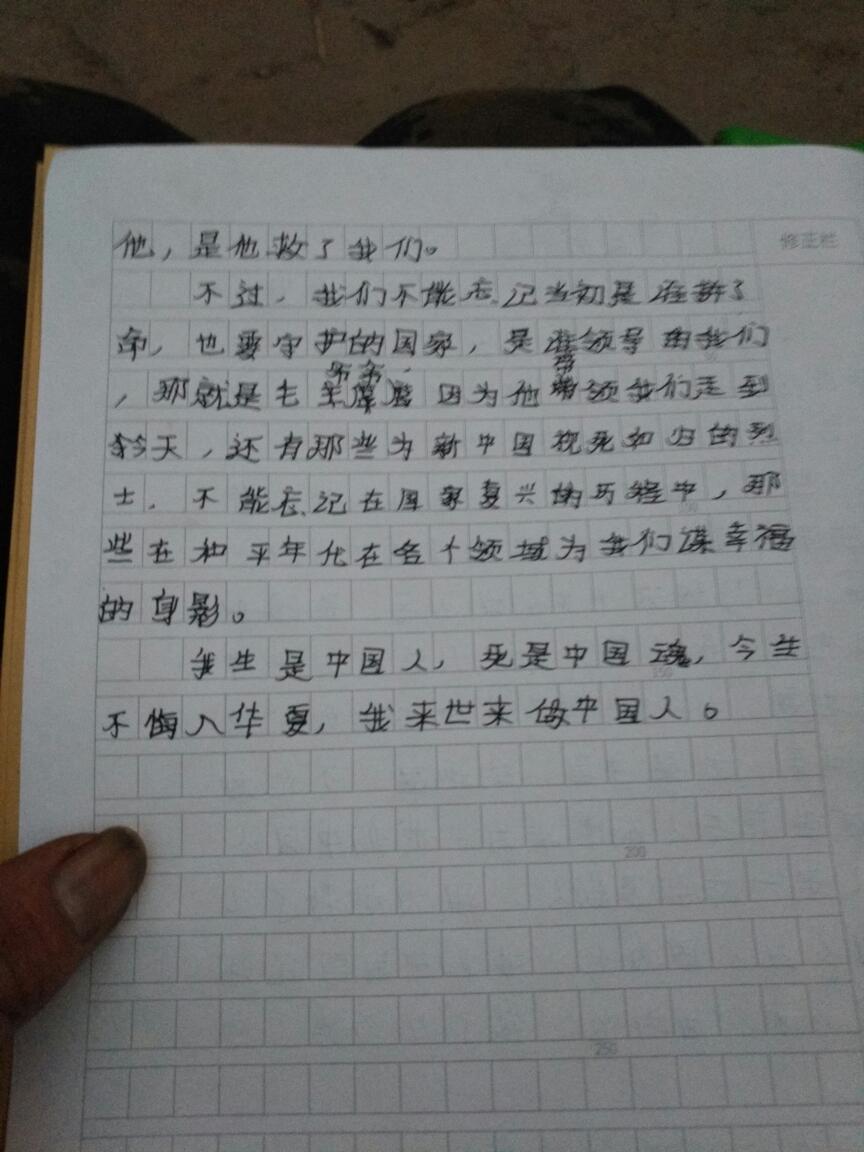 修正栏
他，是他救了我们。
不过，我们不能忘记当初是谁拼了
命，也要守护的国家，是谁领导的我们
，那就是毛 爷爷，因为他带领我们走到
今天，还有那些为新中国视死如归的烈
士，不能忘记在国家复兴的历程中，那
些在和平年代在各个领域为我们谋幸福
的身影。
我生是中国人，死是中国魂，今生
不悔入华夏，我来世来做中国人。
200
250